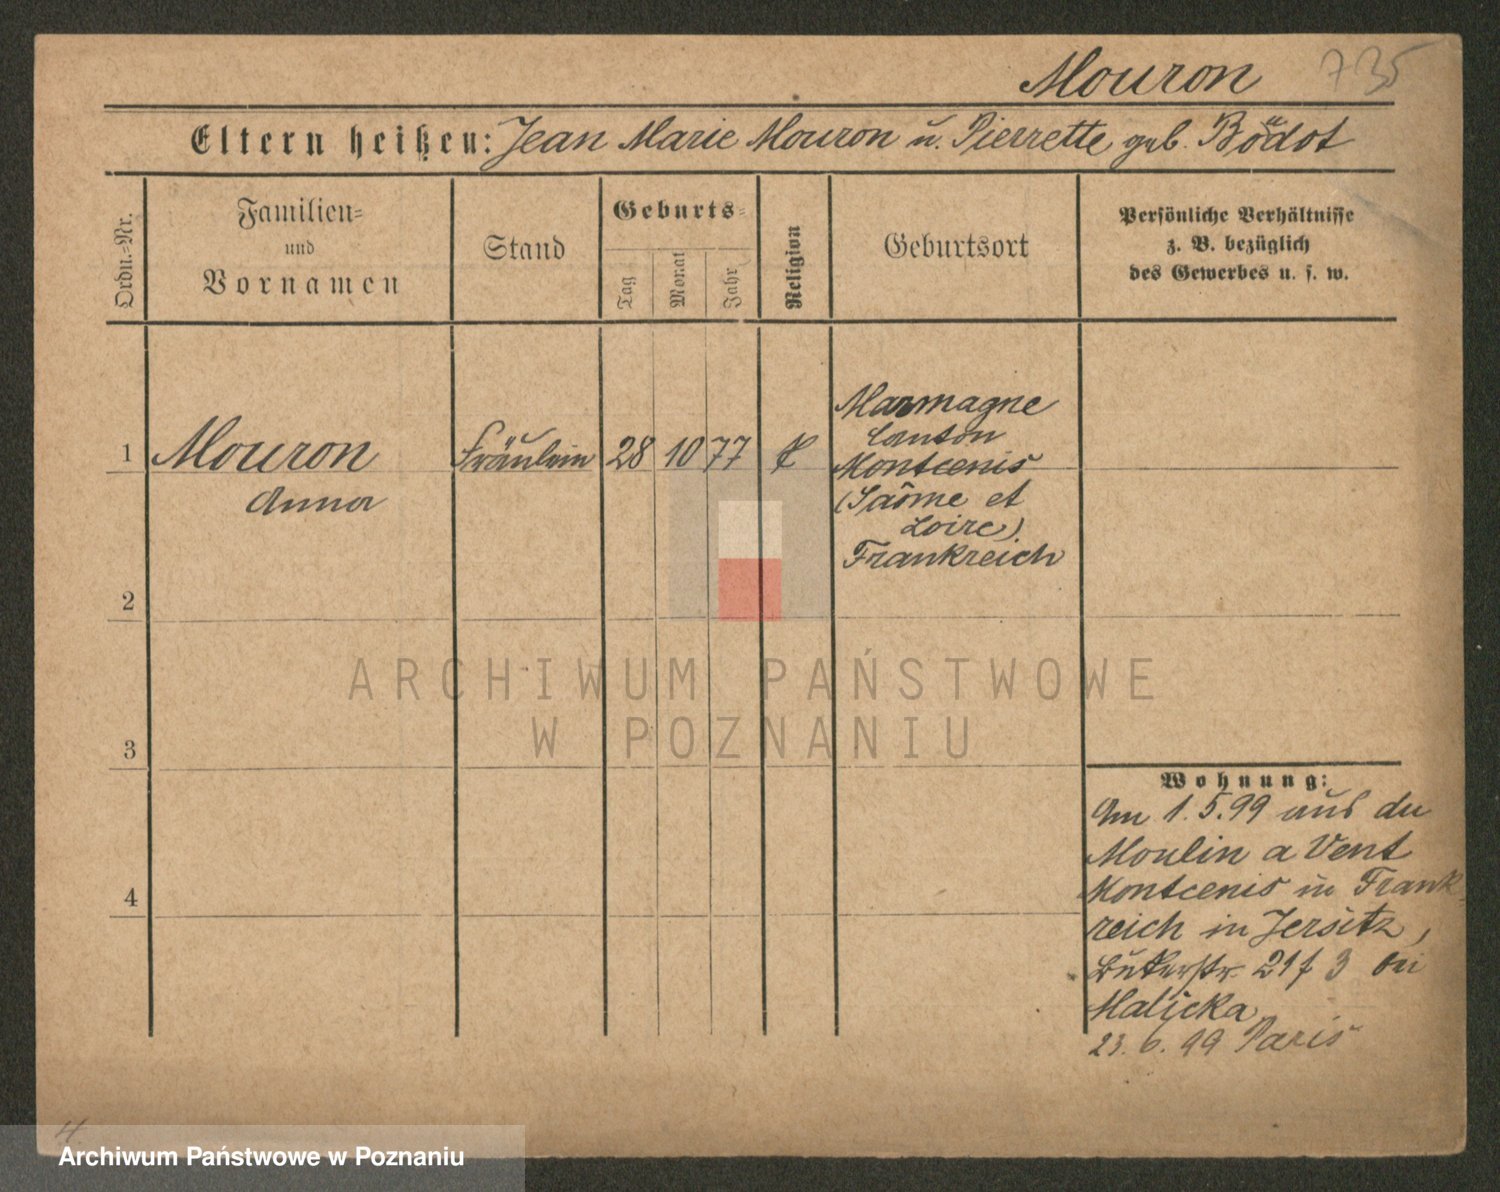 Mouron 735
Eltern heißen: Jean Marie Mouron u. Pierrette geb. Bödot
Ordn.-Nr.
Familien-
und
Vornamen
Stand
Geburts-
Tag
Monat
Jahr
Religion
Geburtsort
Persönliche Verhältnisse
z. B. bezüglich
des Gewerbes u. s. w.
1 Mouron Fräulein 28 10 77 k
Anna
Marmagne
Canton
Montcenis
(Saône et
Loire)
Frankreich
2
3
4
Wohnung:
Am 1.5.99 aus du
Moulin a Vent
Montcenis in Frank-
reich in Jersitz,
21 3 bei
Malicka
23. 6. 99 Paris
4
ARCHIWUM PAŃSTWOWE
W POZNANIU
Archiwum Państwowe w Poznaniu